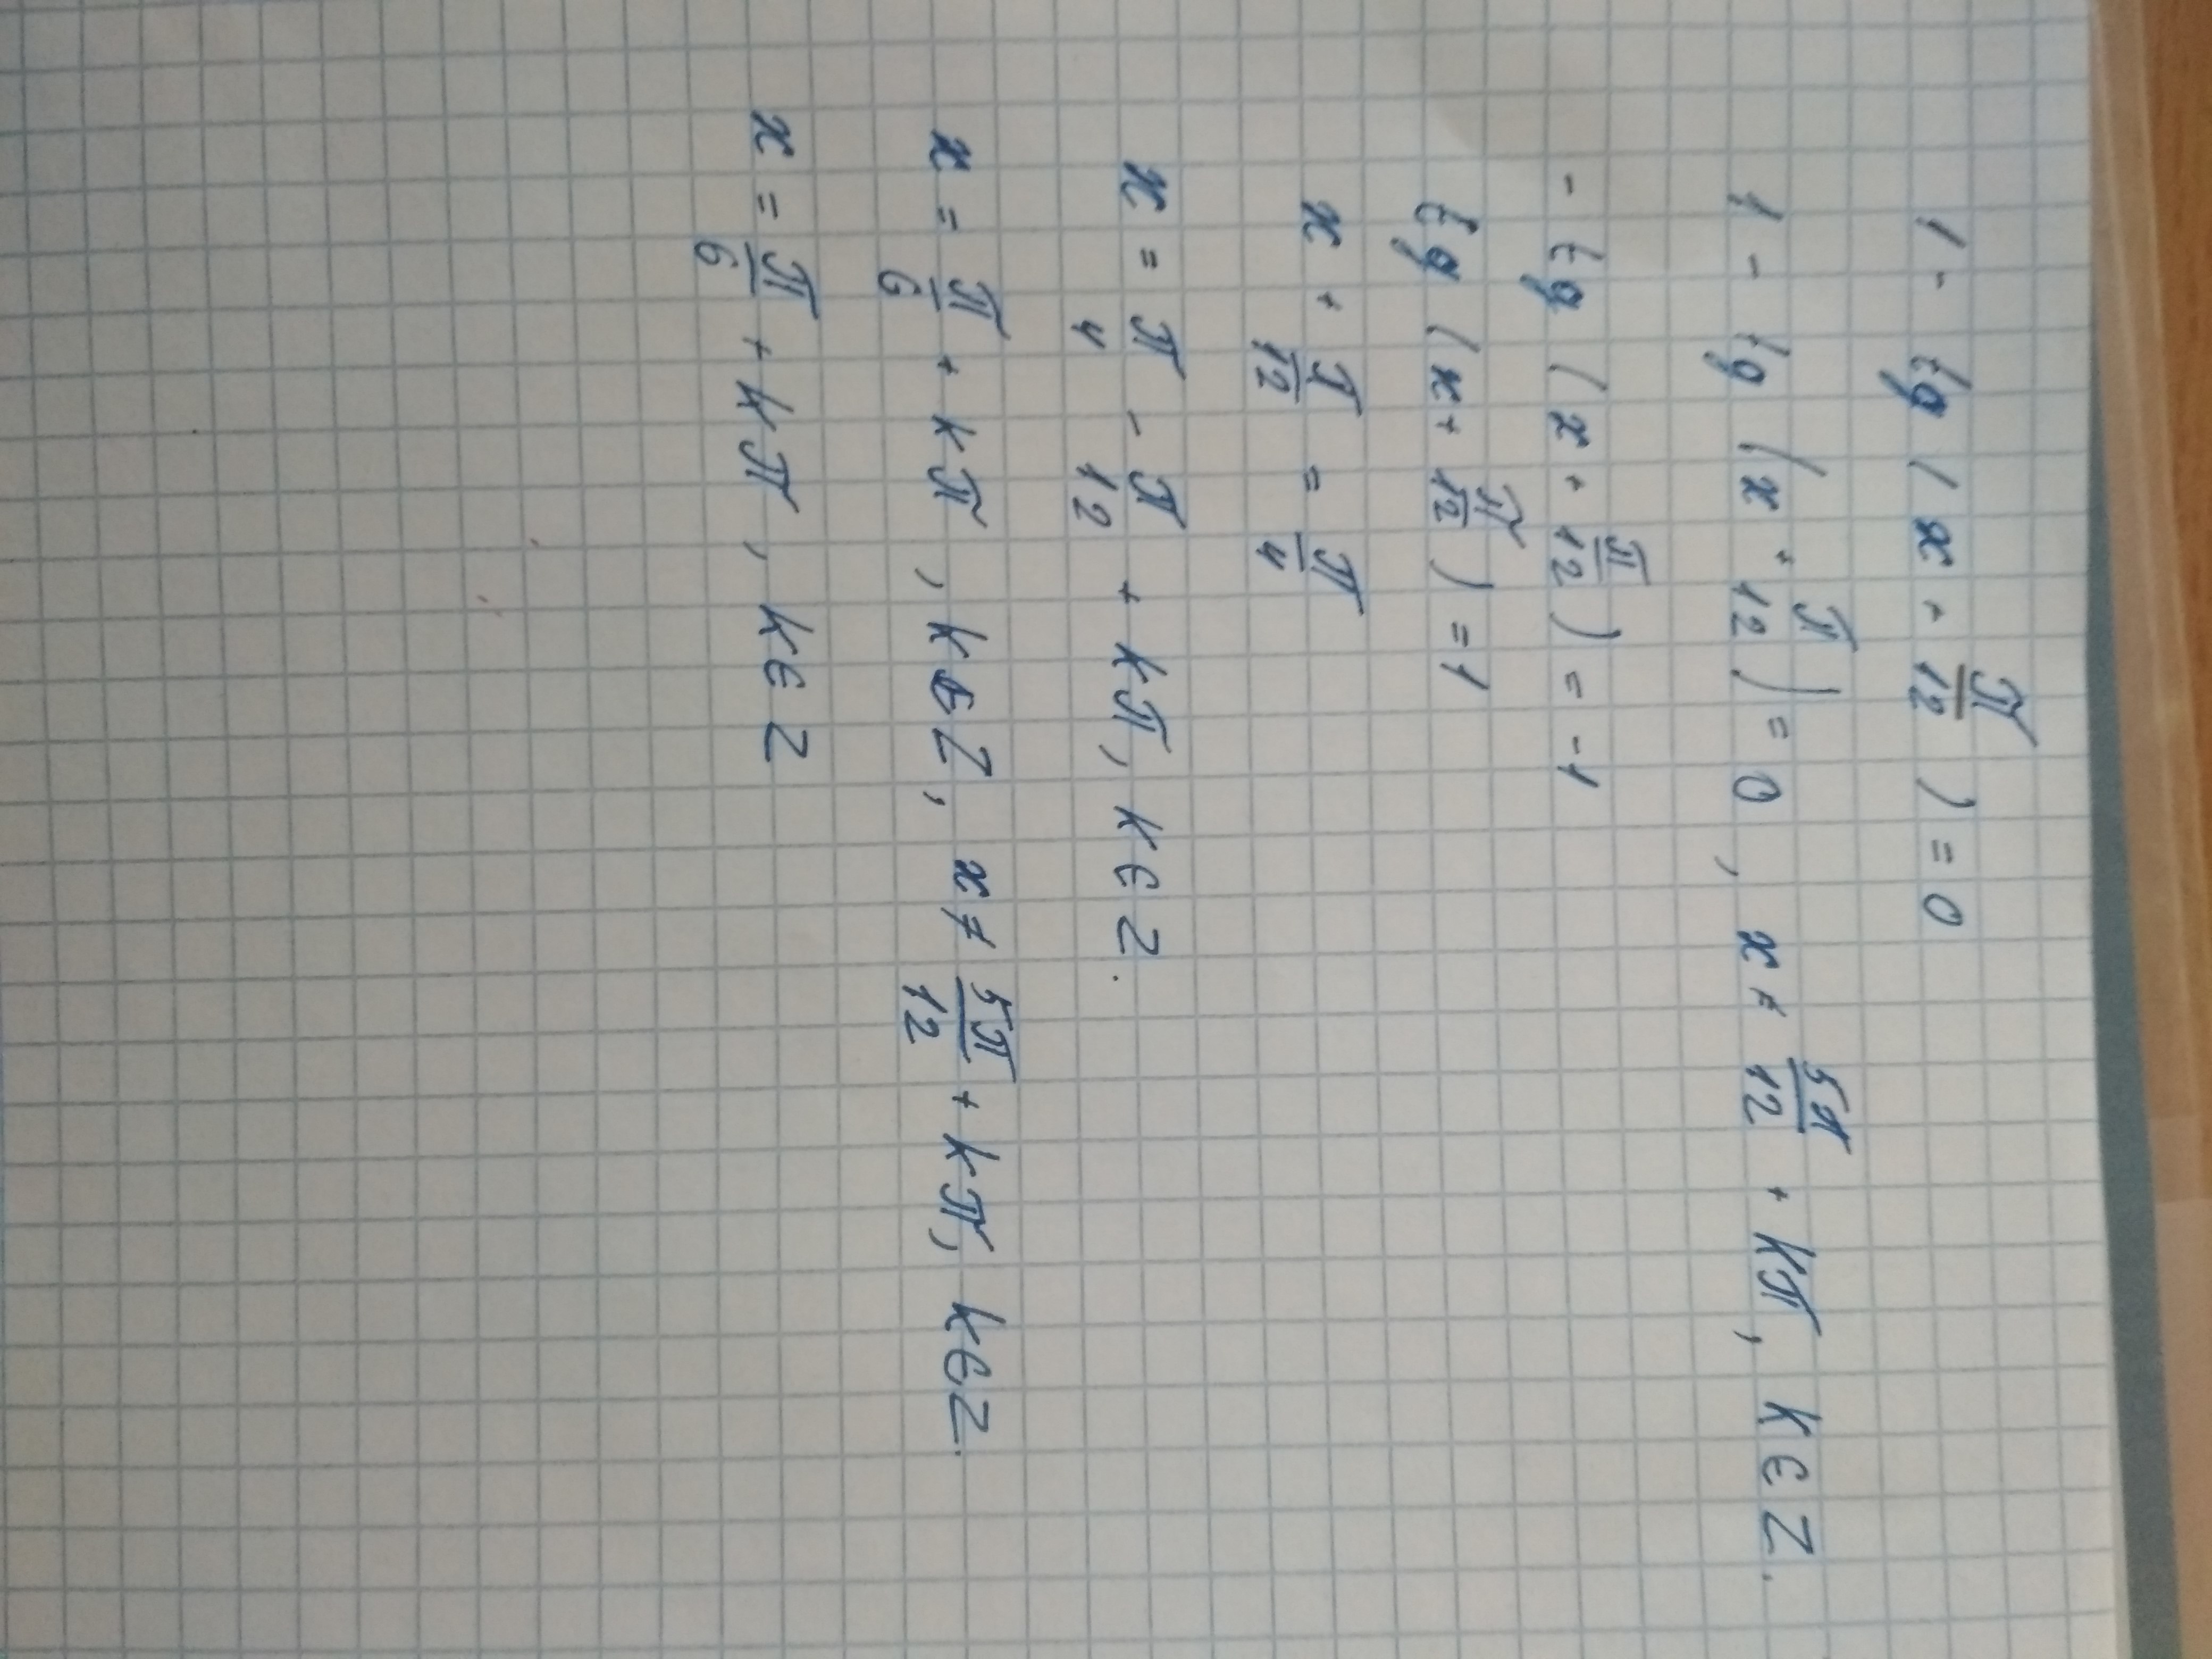 1 - tg ( x + π/12 ) = 0
1 - tg ( x + π/12 ) = 0 , x ≠ 5π/12 + kπ , k ∈ Z.
- tg ( x + π/12 ) = -1
tg ( x + π/12 ) = 1
x + π/12 = π/4
x = π/4 - π/12 + kπ , k ∈ Z.
x = π/6 + kπ , k ∈ Z , x ≠ 5π/12 + kπ , k ∈ Z.
x = π/6 + kπ , k ∈ Z